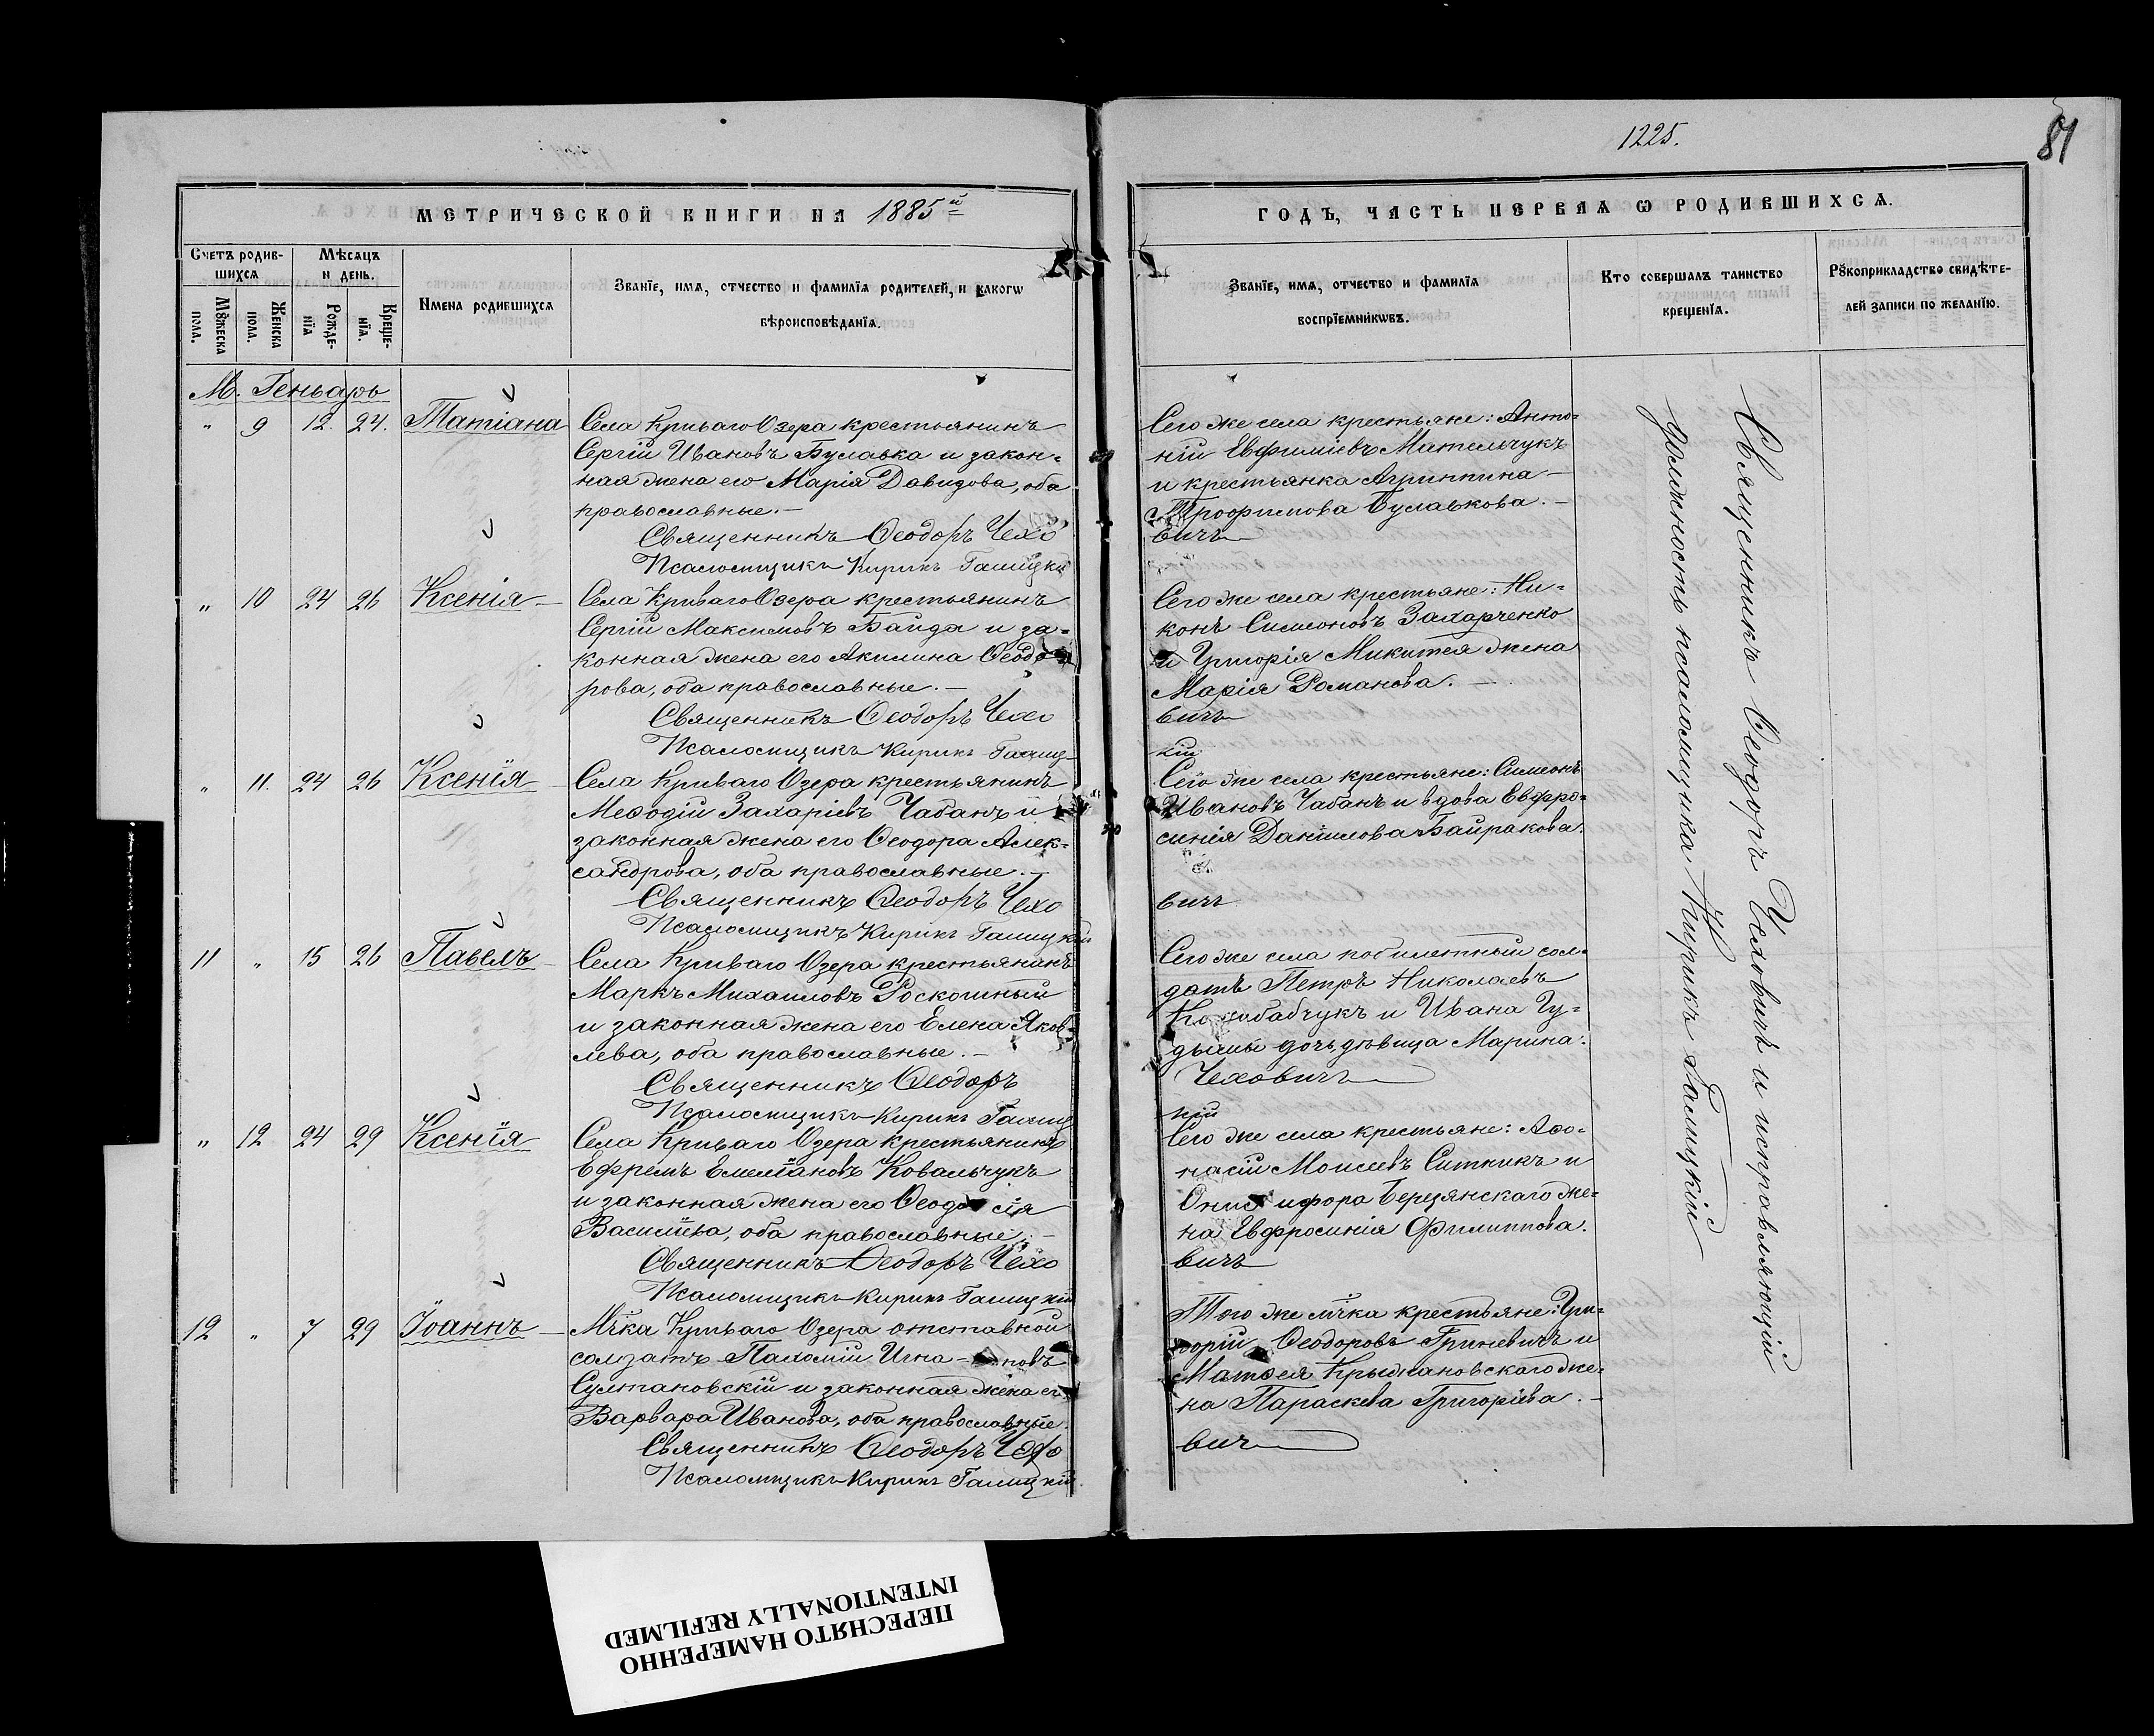 1225.
81
МЕТРИЧЕСКОЙ КНИГИ НА 1885й
ГОДЪ, ЧАСТЬ ПЕРВАЯ Ѡ РОДИВШИХСѦ.
Счетъ родив-
шихсѧ
Мѣсѧцъ
и день.
Мꙋжеска
пола.
Женска
пола.
Рожде-
нїѧ
Креще-
нїѧ.
Имена родившихсѧ
Званїе, имѧ, отчество и фамилїѧ родителей, и какогѡ
вѣроисповѣданїѧ.
Званїе, имѧ, отчество и фамилїѧ
воспрїемникѡвъ.
Кто совершалъ таинство
крещенїѧ.
Рꙋкоприкладство свидѣте-
лей записи по желанїю.
М. Геньарь
" 9 12. 24. Татіана
Села Криваго Озера крестьянинъ
Сергій Ивановъ Булавка и закон-
ная жена его Марія Давидова, оба
православные.-
Священникъ Ѳеодоръ Чехо
Псаломщикъ Кирикъ Галицкій
Сего же села крестьяне: Анто-
ній Евфиміевъ Мательчукъ
и крестьянка Агриппина
Трофимова Булавкова.-
вичъ
" 10 24 26 Ксенія
Села Криваго Озера крестьянинъ
Сергій Максимовъ Байда и за-
конная жена его Акилина Ѳеодо-
рова, оба православные.-
Священникъ Ѳеодоръ Чехо
Псаломщикъ Кирикъ Галиц-
Сего же села крестьяне: Ни-
конъ Симеоновъ Захарченко
и Григорія Микитея жена
Марія Романова.-
вичъ
кій
" 11. 24 26 Ксенія
Села Криваго Озера крестьянинъ
Меѳодій Захаріевъ Чабанъ и
законная жена его Ѳеодора Алек-
сандрова, оба православные.-
Священникъ Ѳеодоръ Чехо
Псаломщикъ Кирикъ Галицкій
Сего же села крестьяне: Симеонъ
Ивановъ Чабанъ и вдова Евфро-
синія Даніилова Байракова.
вичъ
11 " 15 26 Павелъ
Села Криваго Озера крестьянинъ
Маркъ Михаиловъ Роскошный
и законная жена его Елена Яков-
лева, оба православные.-
Священникъ Ѳеодоръ
Псаломщикъ Кирикъ Галиц
Сего же села побилетный сол-
датъ Петръ Николаевъ
и Ивана Гу-
дымы дочь девица Марина.
Чеховичъ
кій
" 12 24 29 Ксенія
Села Криваго Озера крестьянинъ
Ефремъ Емеліановъ Ковальчукъ
и законная жена его Ѳеодосія
Василіева, оба православные.-
Священникъ Ѳеодоръ Чехо
Псаломщикъ Кирикъ Галицкій
Сего же села крестьяне: Аѳа-
насій Моисеевъ Ситникъ и
Онисифора Березянскаго же-
на Евфросинія Филиппова.
вичъ
12 " 7 29 Іоаннъ
М-чка Криваго Озера отставной
солдатъ Пахомій
Султановскій и законная жена его
Варвара Иванова, оба православные.
Священникъ Ѳеодоръ Чехо
Псаломщикъ Кирикъ Галицкій
Того же м-чка крестьяне: Гри-
горій Ѳеодоровъ Гриневичъ и
Матѳея Крыжановскаго же-
на Параскева Григоріева.-
вичъ
Священникъ Ѳеодоръ Чеховичъ и исправляющій
должность псаломщика Кирикъ Галицкій
ПЕРЕСНЯТО НАМЕРЕННО
INTENTIONALLY REFILMED